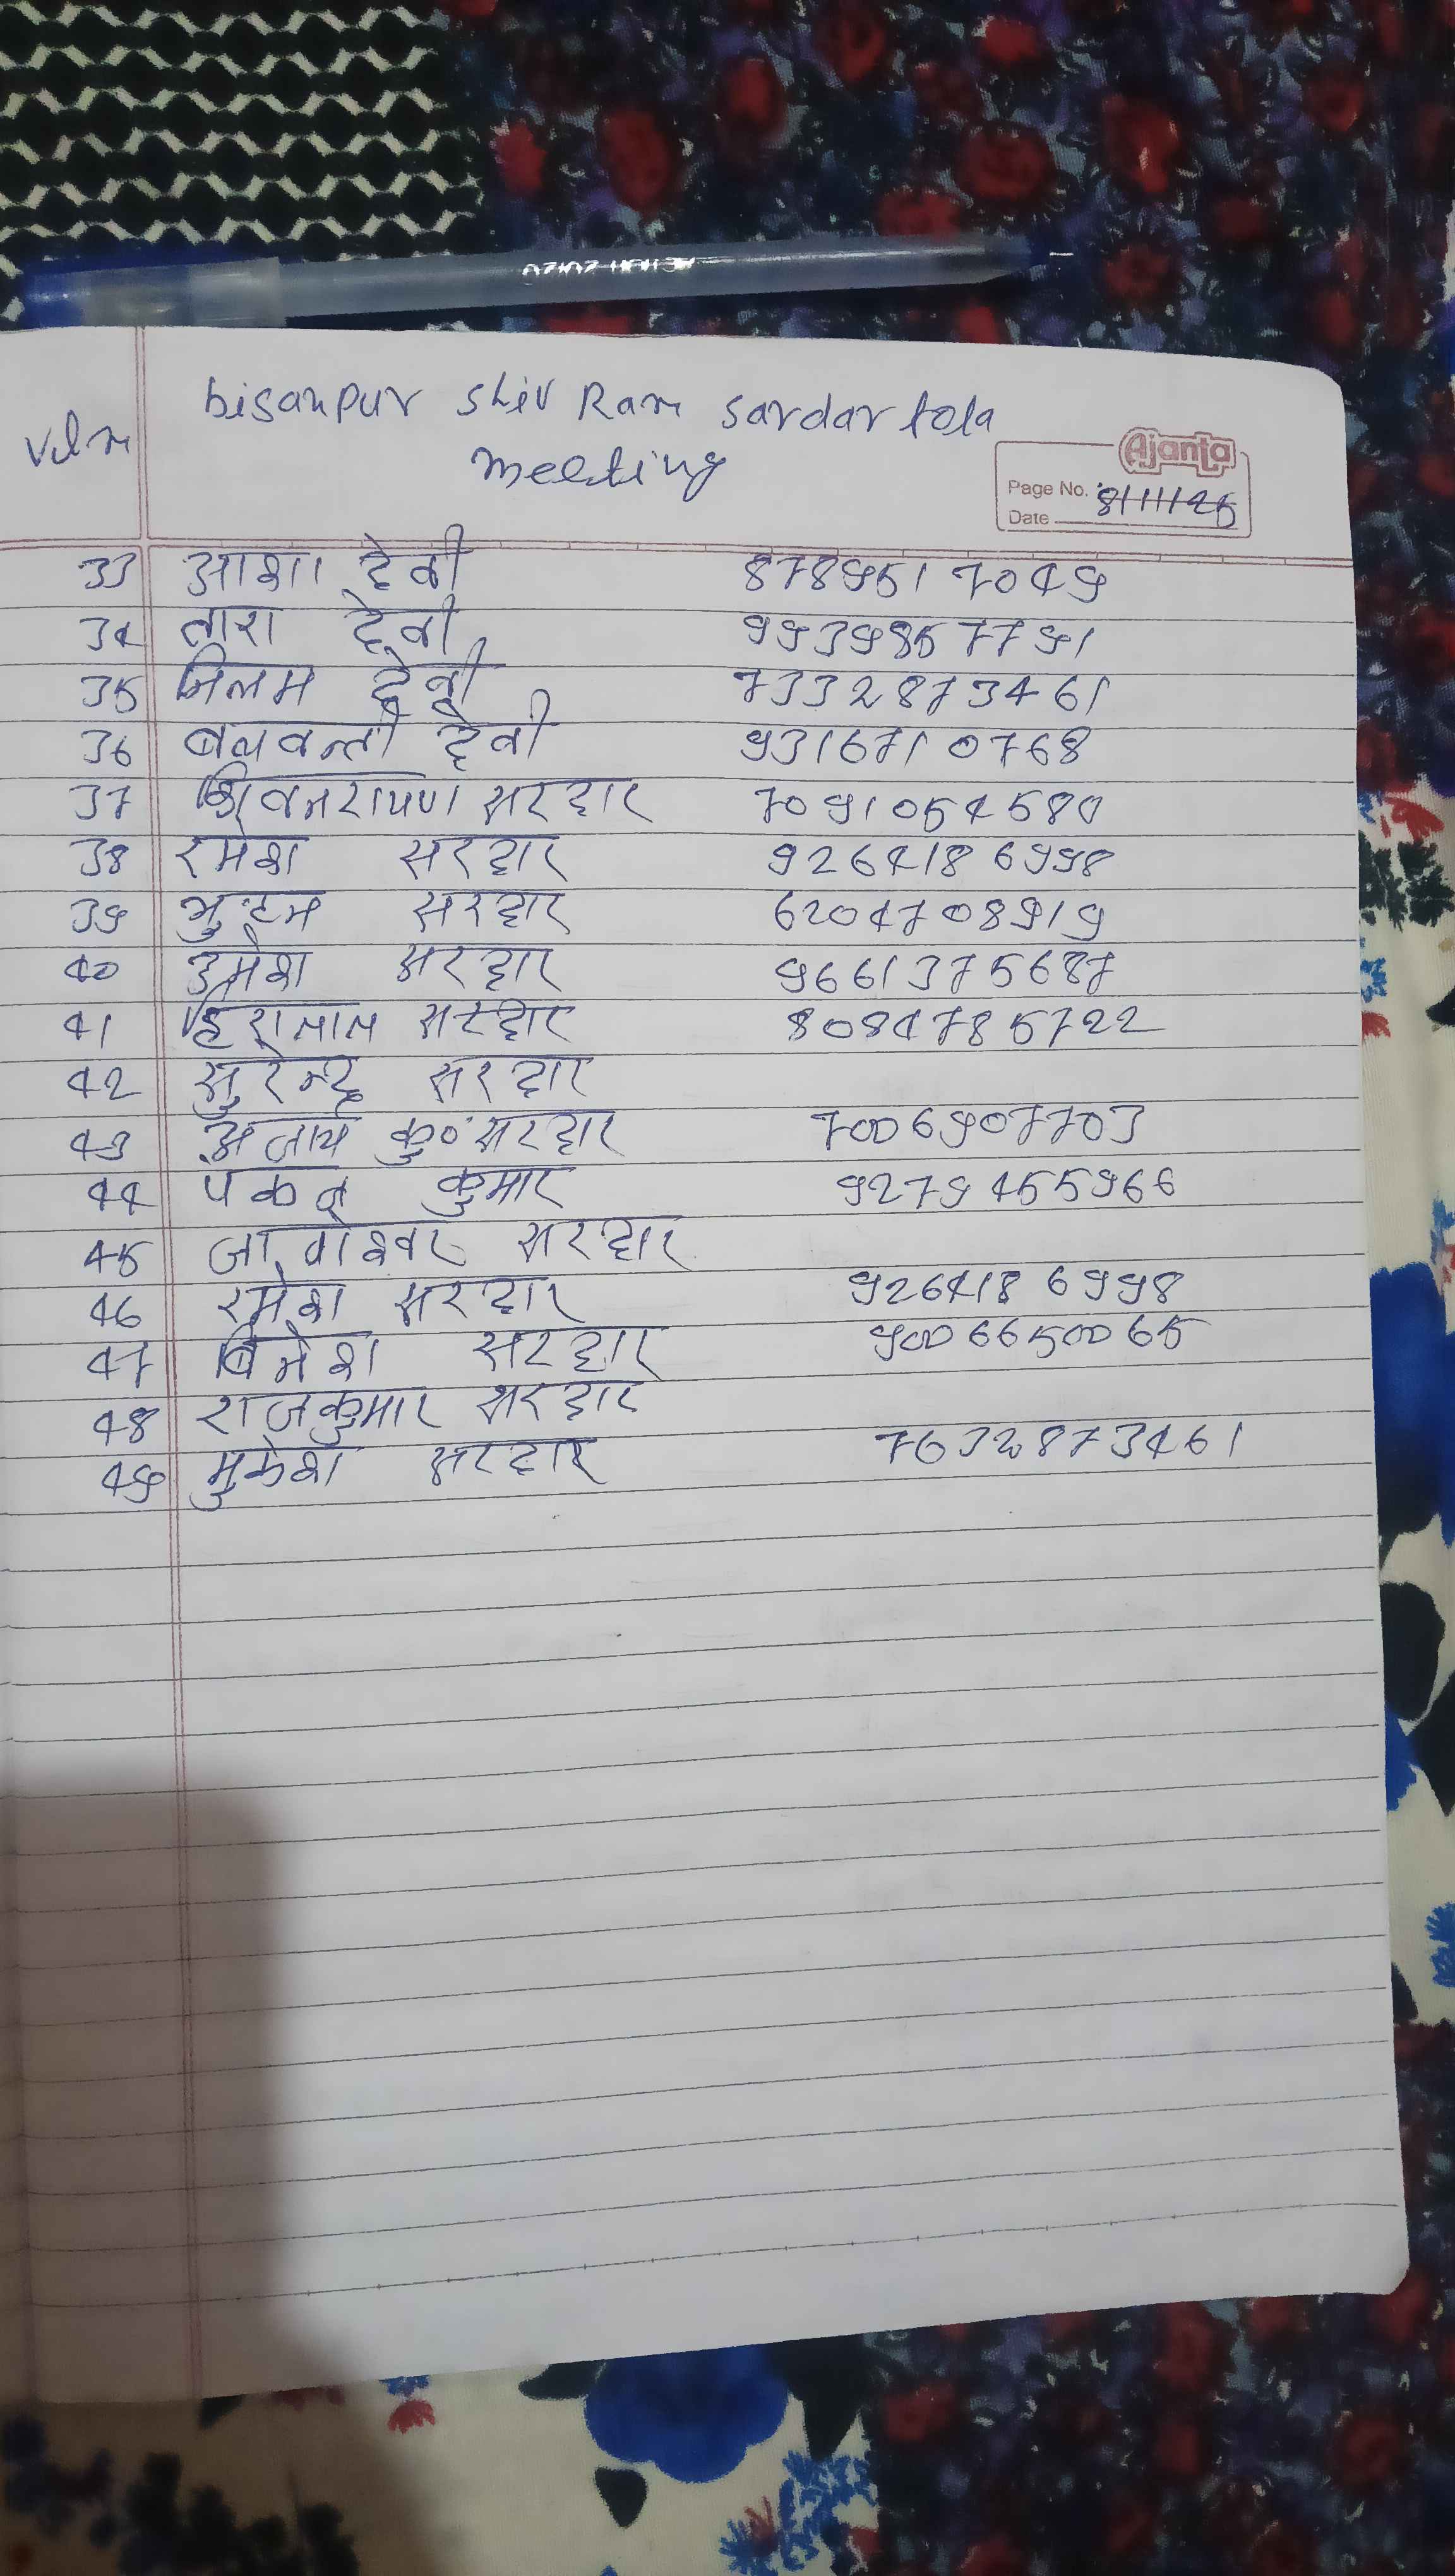 bisanpur shiv Ram sardar tola
meeting
Ajanta
Page No.
Date 8/11/25
33 आशा देवी 8789517049
34 तारा देवी 9939857791
35 निलम देवी 7332873461
36 देवी 9316710768
37 शिवनरायण सरदार 7091054580
38 रमेश सरदार 9264186998
39 सरदार 6204708919
40 उमेश सरदार 9661375687
41 हिरालाल सरदार 8084785722
42 सुरेन्द्र सरदार
43 कु० सरदार 7006907703
44 पंकज कुमार 9279455966
45 सरदार
46 रमेश सरदार 9264186998
47 सरदार 9006650065
48 राजकुमार सरदार
49 मुकेश सरदार 7632873461